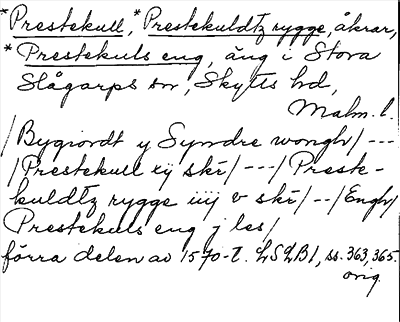 *Prestekull, *Prestekuldtz rygge, åkrar,
*Prestekuls eng, äng i Stora
Slågarps sn, Skytts hd,
Malm. l.
/Bygiordt y Syndre wongh/ ---
/Prestekull xij skr/ --- /Preste-
kuldtz rygge iiij v skr/ -- /Engh/
Prestekuls eng j les/
förra delen av 1570-t. LSLB1, ss. 363, 365.
orig.